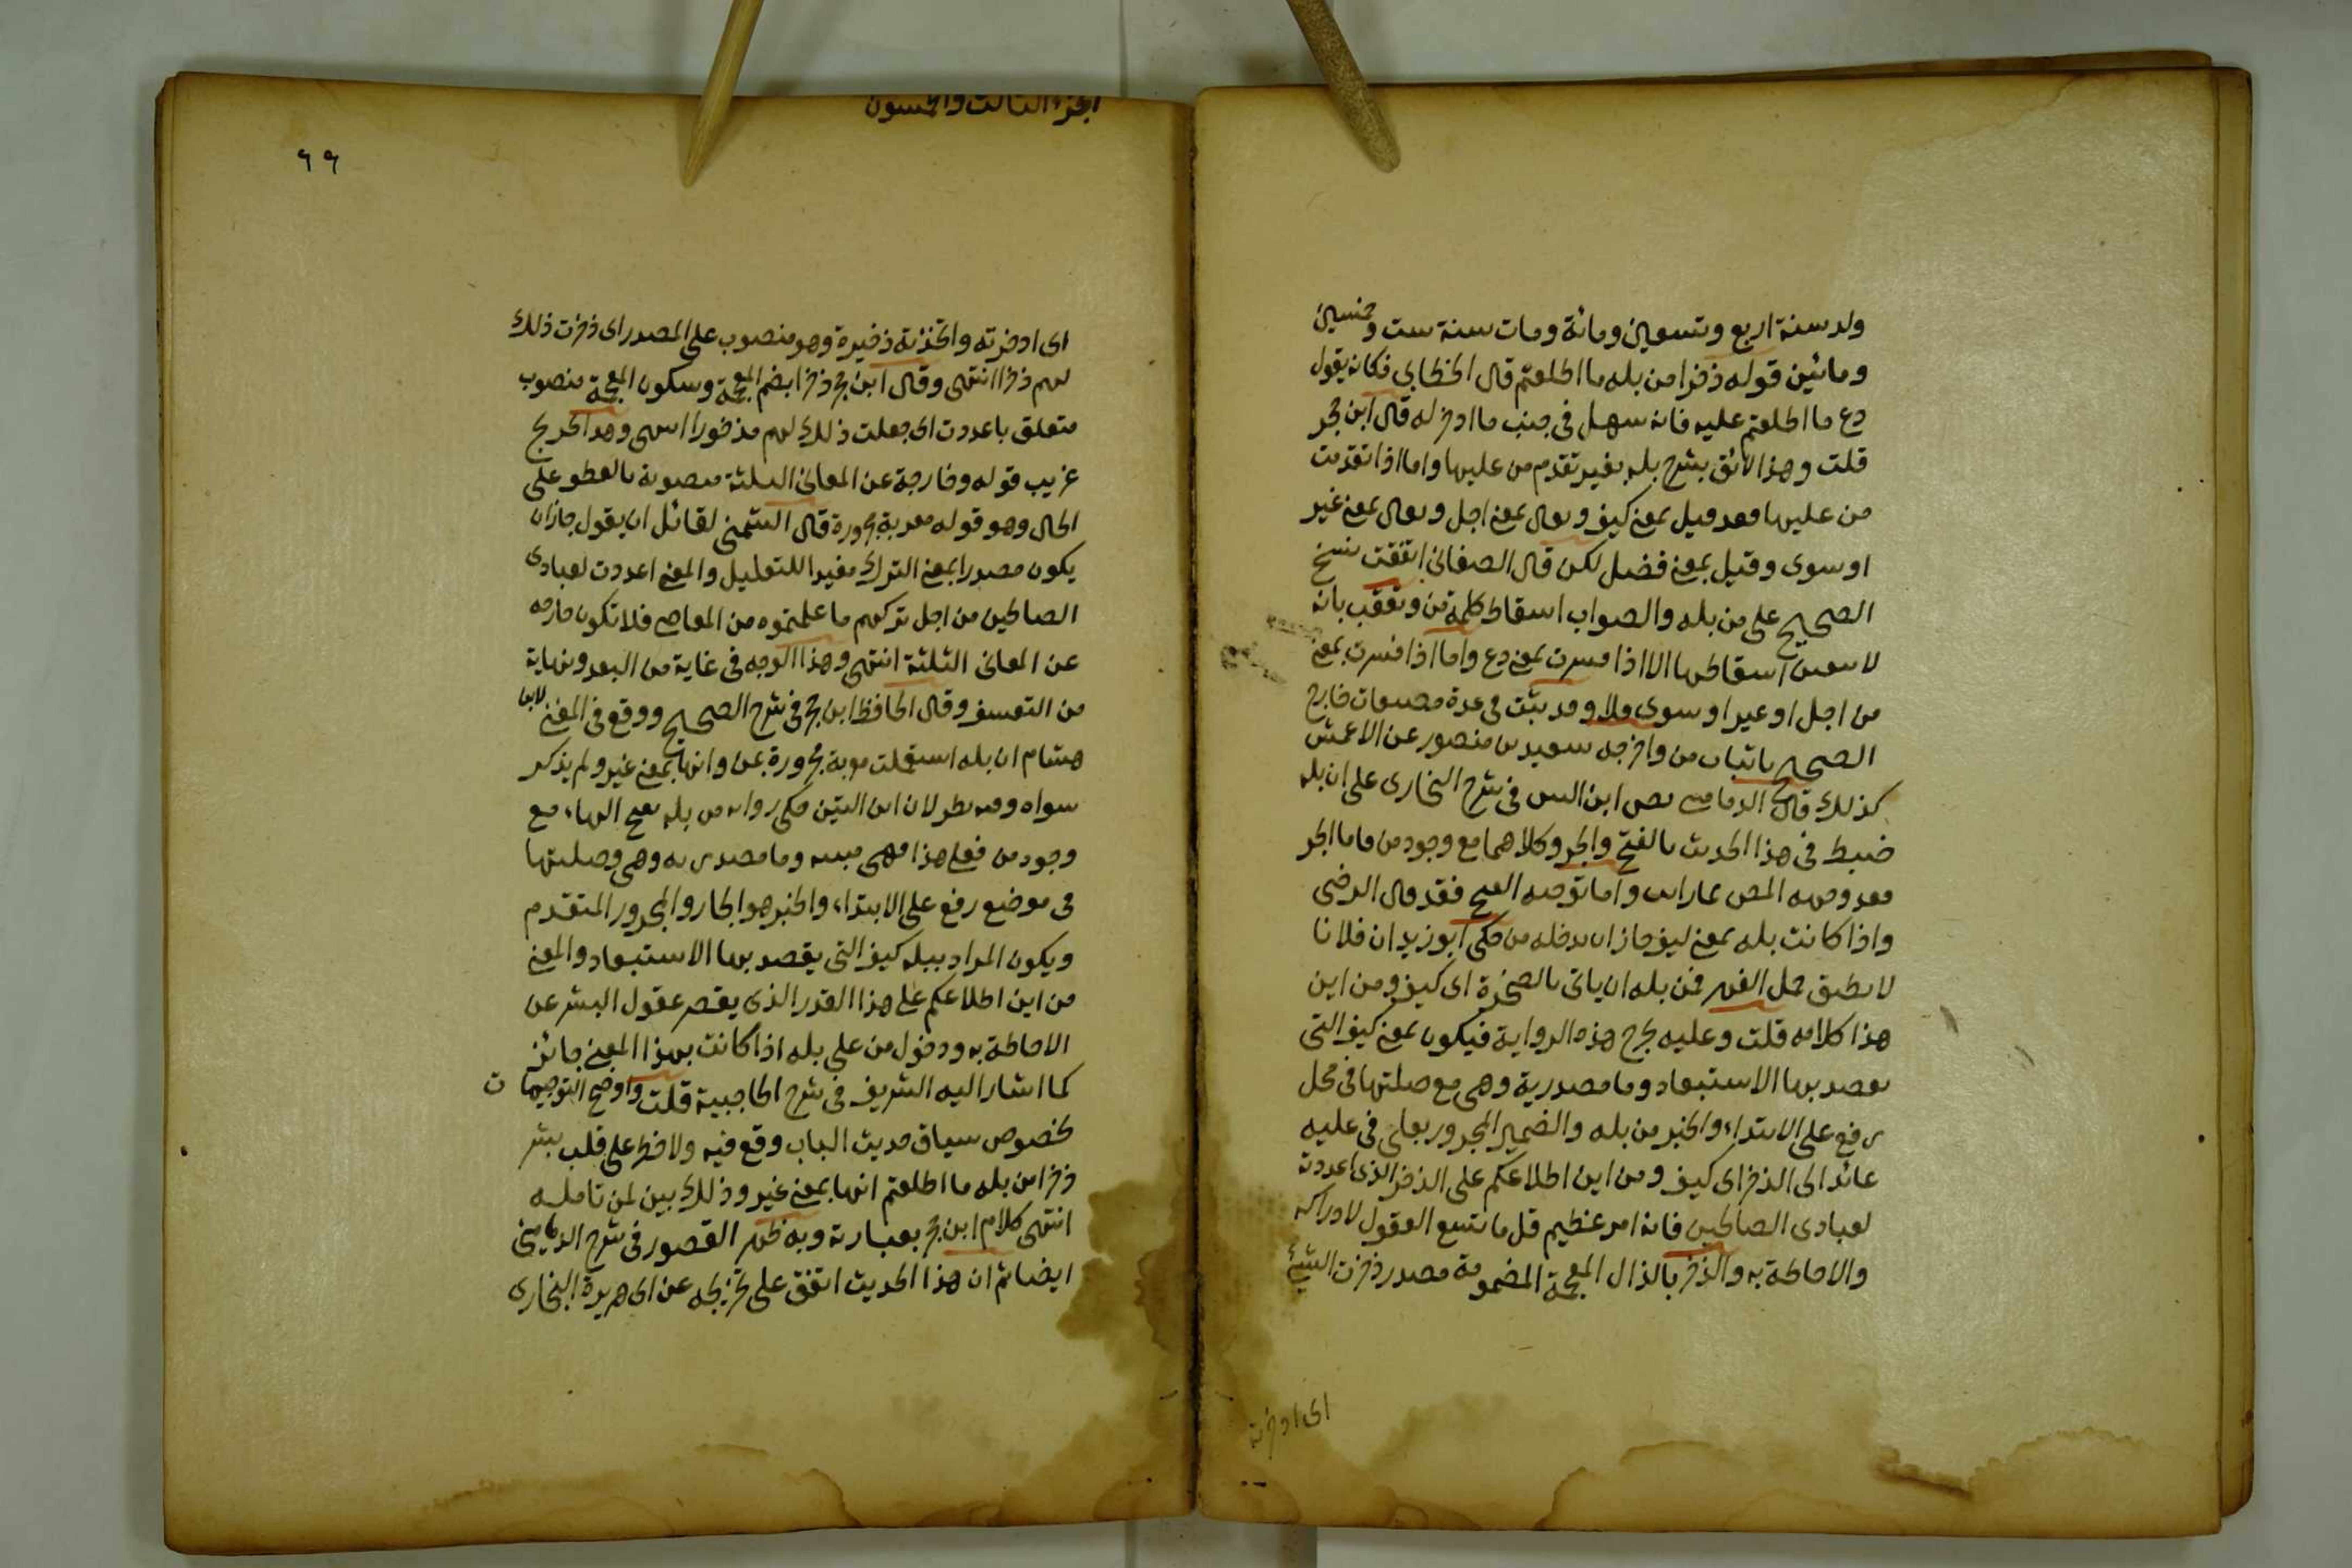 ولد سنة اربع وتسعين ومائة ومات سنة ست وخمسين
ومائتين قوله ذخرا من بله ما اطلعتم قال الخطابي فكانه يقول
دع ما اطلعتم عليه فانه سهل في جنب ما ادخر له قال ابن حجر
قلت وهذا لائق بشرح بله بغير تقدم من عليها واما اذا تقدمت
من عليها فقد قيل بمعنى كيف ويقال بمعنى اجل ويقال بمعنى غير
او سوى وقيل بمعنى فضل لكن قال الصغاني اتفقت نسخ
الصحيح على من بله والصواب اسقاط كلمة من وتعقب بانه
لا يتعين اسقاطها الا اذا فسرت بمعنى دع واما اذا فسرت بمعنى
من اجل او غير او سوى فلا وقد ثبت في عدة مصنفات خارج
الصحيح باثبات من واخرجه سعيد بن منصور عن الاعمش
كذلك قال الدماميني نص ابن التين في شرح البخاري على ان بله
ضبط في هذا الحديث بالفتح والجر وكلاهما مع وجود من فاما الجر
فقد وجهه المص بما رايت واما توجيه الفتح فقد قال الرضى
واذا كانت بله بمعنى كيف جاز ان تدخله من حكى ابو زيد ان فلانا
لا يطيق حمل الفهر فمن بله ان ياتى بالصخرة اى كيف ومن اين
هذا كلامه قلت وعليه يخرج هذه الرواية فيكون بمعنى كيف التى
يقصد بها الاستبعاد وما مصدرية وهى مع صلتها في محل
رفع على الابتداء والخبر من بله والضمير المجرور بعلى في عليه
عائد الى الذخر اى كيف ومن اين اطلاعكم على الذخر الذى اعددت
لعبادى الصالحين فانه امر عظيم قل ما تتسع العقول لادراكه
والاحاطة به والذخر بالذال المعجمة المضمومة مصدر ذخرت الشيئ
اى ادخرته
الجزء الثالث والخمسون
٦٩
اى ادخرته واتخذته ذخيرة وهو منصوب على المصدر اى ذخرت ذلك
لهم ذخرا انتهى وقال ابن حجر ذخرا بضم المعجمة وسكون المعجمة منصوب
متعلق باعددت اى جعلت ذلك لهم مذخورا انتهى وهذا تخريج
غريب قوله وخارجة عن المعانى الثلثة منصوبة بالعطف على
الحال وهو قوله معربة مجرورة قال الشمني لقائل ان يقول جاز ان
يكون مصدرا بمعنى الترك مفيدا للتعليل والمعنى اعددت لعبادى
الصالحين من اجل تركهم ما علمتموه من المعاصى فلا تكون خارجه
عن المعانى الثلثة انتهى وهذا الوجه في غاية من البعد ونهاية
من التعسف وقال الحافظ ابن حجر في شرح الصحيح ووقع في المغنى لابن
هشام ان بله استعملت معربة مجرورة بمن وانها بمعنى غير ولم يذكر
سواه وفيه نظر لان ابن التين حكى رواية من بله بفتح الهاء مع
وجود من فعلى هذا فهى مبنية وما مصدرية وهى وصلتها
في موضع رفع على الابتداء والخبر هو الجار والمجرور المتقدم
ويكون المراد ببله كيف التى يقصد بها الاستبعاد والمعنى
من اين اطلاعكم على هذا القدر الذى يقصر عقول البشر عن
الاحاطة به ودخول من على بله اذا كانت بهذا المعنى جائز
كما اشار اليه الشريف في شرح الحاجبية قلت واوضح التوجيهات
لخصوص سياق حديث الباب وقع فيه ولا خطر على قلب بشر
ذخرا من بله ما اطلعتم انها بمعنى غير وذلك بين لمن تامله
انتهى كلام ابن حجر بعبارته وبه ظهر القصور في شرح الدمامينى
ايضا ثم ان هذا الحديث اتفق على تخريجه عن ابى هريرة البخارى